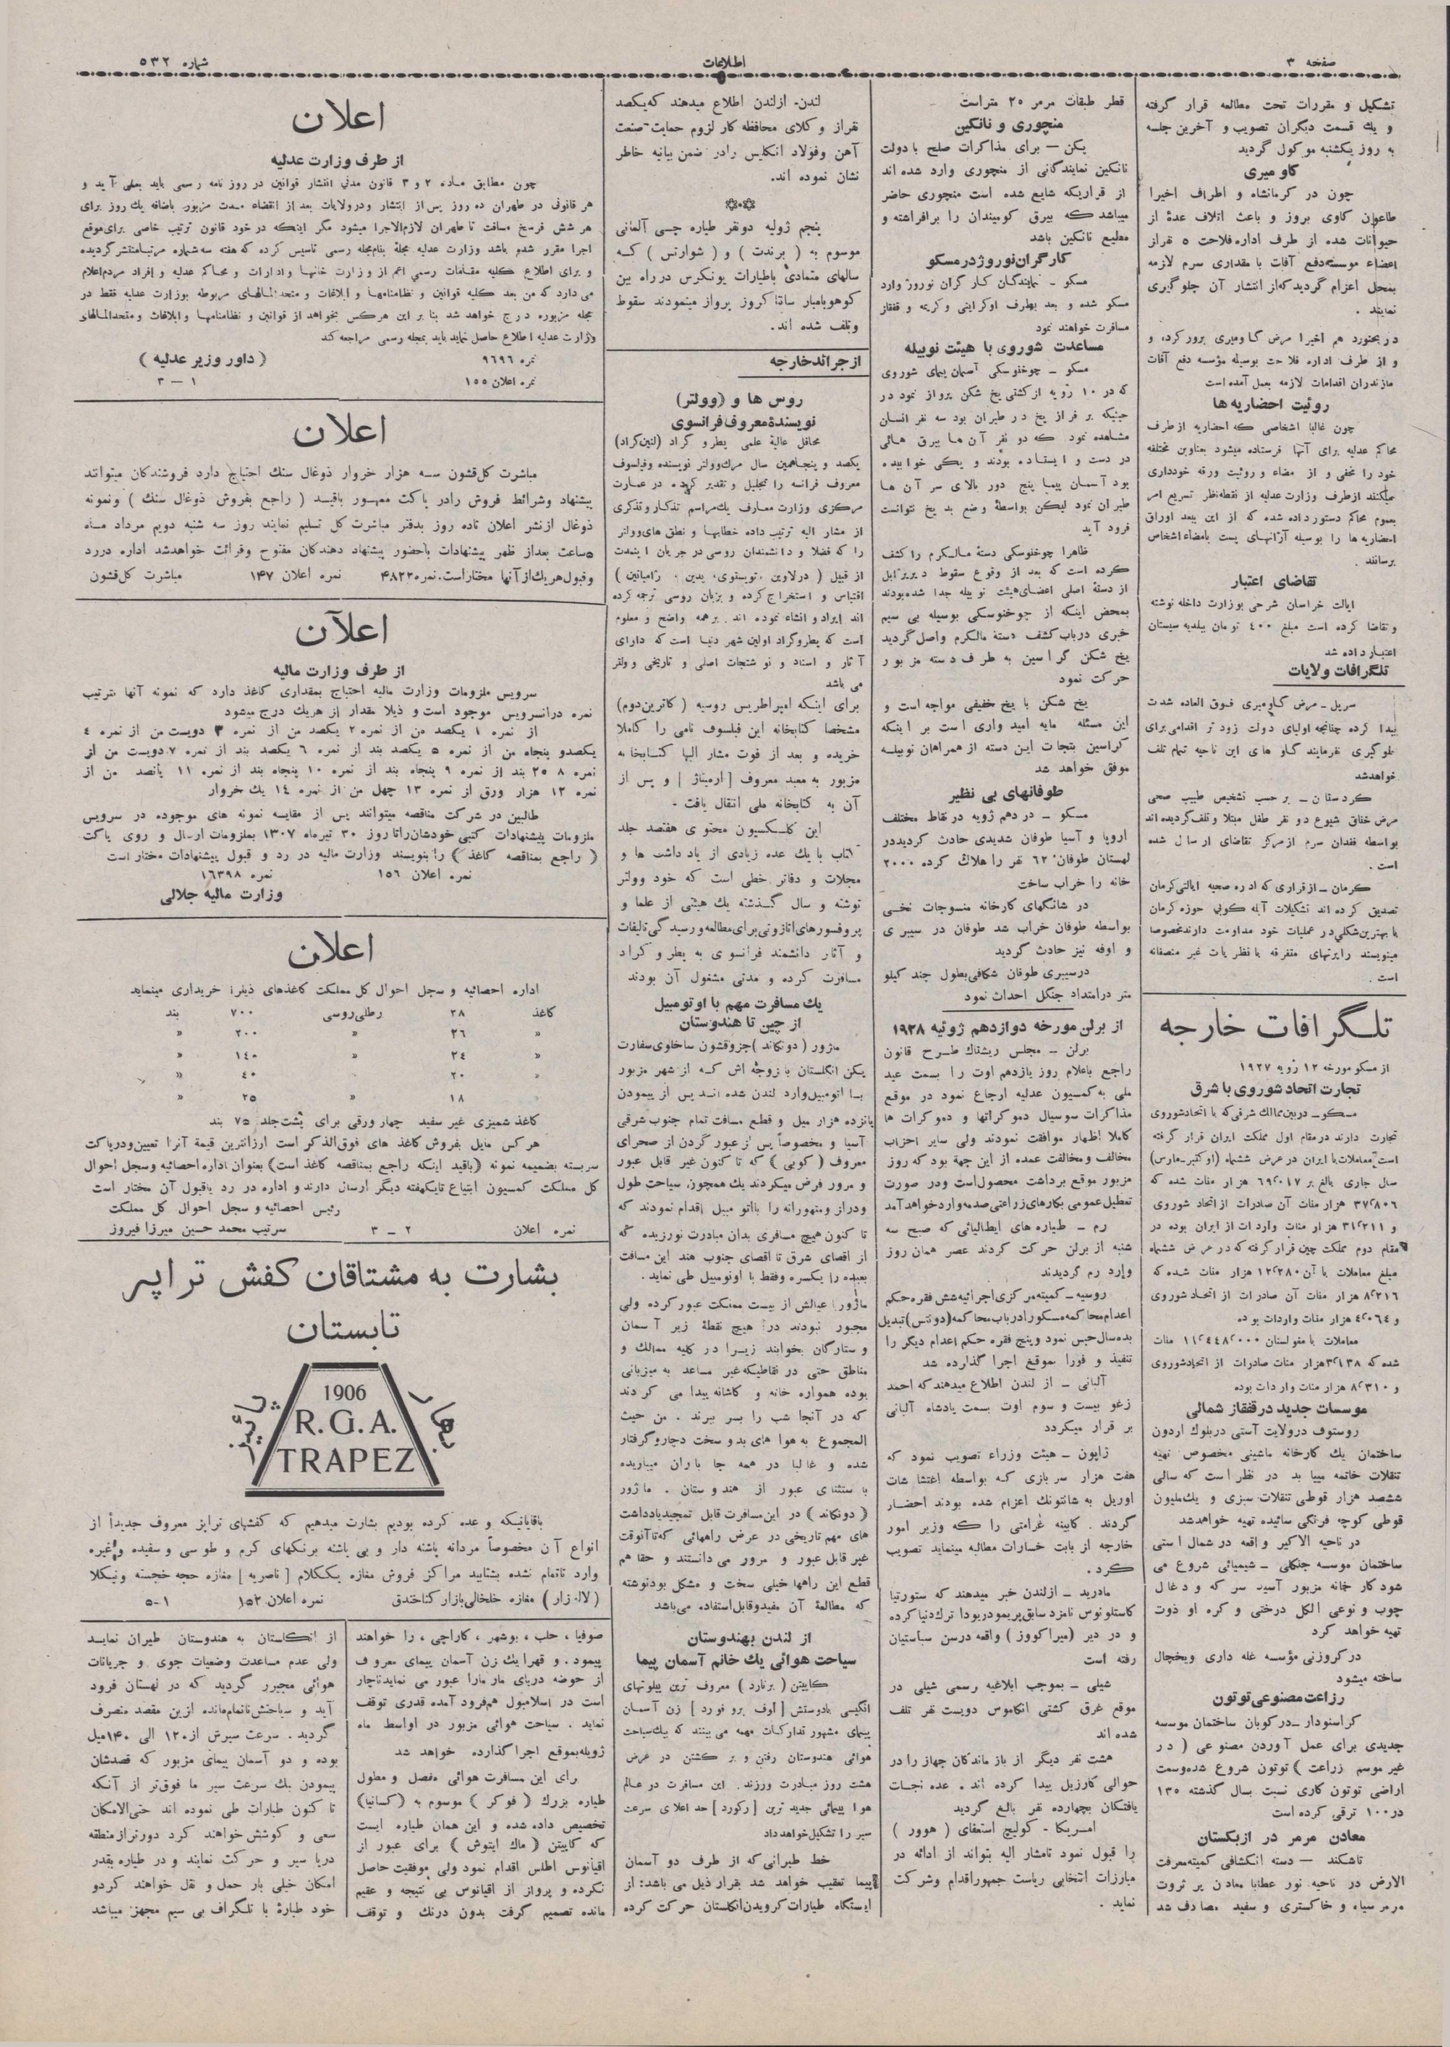 صفحه ۳
اطلاعات
شماره ۵۳۲
تشکیل و مقررات تحت مطالعه قرار گرفته
و یك قسمت دیگران تصویب و آخرین جلسه
به روز یکشنبه موکول گردید
گاو میری
چون در کرمانشاه و اطراف اخیرا
طاعون گاوی بروز و باعث اتلاف عدۀ از
حیوانات شده از طرف اداره فلاحت ۵ نفراز
اعضاء موسسه دفع آفات با مقداری سرم لازمه
بمحل اعزام گردید که از انتشار آن جلوگیری
نمایند .
در بجنورد هم اخیرا مرض گاومیری بروز کرد، و
و از طرف اداره فلاحت بوسیله مؤسسه دفع آفات
مازندران اقدامات لازمه بعمل آمده است
روئیت احضاریه ها
چون غالبا اشخاصی که احضاریه از طرف
محاکم عدلیه برای آنها فرستاده میشود بعناوین مختلفه
خود را مخفی و از امضاء و روئیت ورقه خودداری
میکنند از طرف وزارت عدلیه از نقطه نظر تسریع امر
بعموم محاکم دستور داده شده که از این ببعد اوراق
احضاریه ها را بوسیله آژانهای پست بامضاء اشخاص
برسانند .
تقاضای اعتبار
ایالت خراسان شرحی بوزارت داخله نوشته
و تقاضا کرده است مبلغ ۴۰۰ تومان ببلدیه سیستان
اعتبار داده شد
تلگرافات ولایات
سریل ـ مرض گاومیری فوق العاده شدت
پیدا کرده چنانچه اولیای دولت زودتر اقدامی برای
جلوگیری نفرمایند گاو های این ناحیه تمام تلف
خواهد شد
کردستان ـ برحسب تشخیص طبیب صحی
مرض خناق شیوع دو نفر طفل مبتلا و تلف گردیده اند
بواسطه فقدان سرم از مرکز تقاضای ارسال شده
است .
کرمان ـ از قراری که اداره صحیه ایالتی کرمان
تصدیق کرده اند تشکیلات آبله کوبی حوزه کرمان
با بهترین شکلی در عملیات خود مداومت دارند مخصوصا
مینویسند راپرتهای متفرقه با نظریات غیر منصفانه
است .
تلگرافات خارجه
از مسکو مورخه ۱۲ ژویه ۱۹۲۷
تجارت اتحاد شوروی با شرق
مسکو ـ در بین ممالك شرقی که با اتحاد شوروی
تجارت دارند در مقام اول مملکت ایران قرار گرفته
است معاملات با ایران در عرض ششماه (اوکتبر ـ مارس)
سال جاری بالغ بر ۶۹٫۰۱۷ هزار منات شده که
۳۷٫۸۰۶ هزار منات آن صادرات از اتحاد شوروی
و ۳۱٫۲۱۱ هزار منات واردات از ایران بوده در
مقام دوم مملکت چین قرار گرفته که در عرض ششماه
مبلغ معاملات با آن ۱۲٫۳۸۰ هزار منات شده که
۸٫۳۱۶ هزار منات آن صادرات از اتحاد شوروی
و ۴٫۰۶۴ هزار منات واردات بوده
معاملات با مغولستان ۱۱٫۴۴۸٫۰۰۰ منات
شده که ۳٫۱۳۸ هزار منات صادرات از اتحاد شوروی
و ۸٫۳۱۰ هزار منات واردات بوده
موسسات جدید در قفقاز شمالی
روستوف در ولایت آستی در بلوك اردون
ساختمان یك کارخانه ماشینی مخصوص تهیه
تنقلات خاتمه میبابد در نظر است که سالی
ششصد هزار قوطی تنقلات سبزی و یك ملیون
قوطی گوجه فرنگی سائیده تهیه خواهد شد
در ناحیه الاگیر واقعه در شمال استی
ساختمان موسسه جنگلی ـ شیمیائی شروع می
شود کارخانه مزبور آسید سرکه و ذغال
چوب و نوعی الکل درختی و کره او ذوت
تهیه خواهد کرد
در گروزنی مؤسسه غله داری و یخچال
ساخته میشود
زراعت مصنوعی توتون
کراسنودار ـ در کوبان ساختمان موسسه
جدیدی برای عمل آوردن مصنوعی ( در
غیر موسم زراعت ) توتون شروع شده وسعت
اراضی توتون کاری نسبت بسال گذشته ۱۳۵
در ۱۰۰ ترقی کرده است
معادن مرمر در ازبکستان
تاشکند — دسته انکشافی کمیته معرفت
الارض در ناحیه نور عطابا معادن پر ثروت
مرمر سیاه و خاکستری و سفید مصادف شد
قطر طبقات مرمر ۲۵ متراست
منچوری و نانکین
پکن — برای مذاکرات صلح با دولت
نانکین نمایندگانی از منچوری وارد شده اند
از قراریکه شایع شده است منچوری حاضر
میباشد که بیرق کومیندان را برافراشته و
مطیع نانکین باشد
کارگران نوروژ در مسکو
مسکو ـ نمایندگان کارگران نوروژ وارد
مسکو شده و بعد بطرف اوکراینی و کریته و قفقاز
مسافرت خواهند نمود
مساعدت شوروی با هیئت نوبیله
مسکو ـ چوخنوسکی آسمان پیمای شوروی
که در ۱۰ ژویه از کشتی یخ شکن پرواز نمود در
حینیکه بر فراز یخ در طیران بود سه نفر انسان
مشاهده نمود که دو نفر آن ها بیرق هائی
در دست و ایستاده بودند و یکی خوابیده
بود آسمان پیما پنج دور بالای سر آن ها
طیران نمود لیکن بواسطۀ وضع بد یخ نتوانست
فرود آید
ظاهرا چوخنوسکی دستۀ مالگرم را کشف
کرده است که بعد از وقوع سقوط دیریژابل
از دستۀ اصلی اعضای هیئت نوبیله جدا شده بودند
بمحض اینکه از چوخنوسکی بوسیله بی سیم
خبری درباب کشف دستۀ مالگرم واصل گردید
یخ شکن گراسین به طرف دسته مزبور
حرکت نمود
یخ شکن با یخ خفیفی مواجه است و
این مسئله مایه امید واری است بر اینکه
کراسین بنجات این دسته از همراهان نوبیله
موفق خواهد شد
طوفانهای بی نظیر
مسکو ـ در دهم ژویه در نقاط مختلف
اروپا و آسیا طوفان شدیدی حادث گردید در
لهستان طوفان ۶۲ نفر را هلاك کرده ۲۰۰۰
خانه را خراب ساخت
در شانگهای کارخانه منسوجات نخی
بواسطه طوفان خراب شد طوفان در سیبری
و اوفه نیز حادث گردید
در سیبری طوفان شکافی بطول چند کیلو
متر در امتداد جنگل احداث نمود
از برلن مورخه دوازدهم ژوئیه ۱۹۲۸
برلن ـ مجلس ریشتاك طرح قانون
راجع باعلام روز یازدهم اوت را بسمت عید
ملی به کمسیون عدلیه ارجاع نمود در موقع
مذاکرات سوسیال دموکراتها و دموکرات ها
کاملا اظهار موافقت نمودند ولی سایر احزاب
مخالف و مخالفت عمده از این جهة بود که روز
مزبور موقع برداشت محصول است و در صورت
تعطیل عمومی بکارهای زراعتی صدمه وارد خواهد آمد
رم ـ طیاره های ایطالیائی که صبح سه
شنبه از برلن حرکت کردند عصر همان روز
وارد رم گردیدند
روسیه ـ کمیته مرکزی اجرائیه شش فقره حکم
اعدام محاکمه مسکو را در باب محاکمه (دونتس) تبدیل
بده سال حبس نمود و پنج فقره حکم اعدام دیگر را
تنفیذ و فورا بموقع اجرا گذارده شد
آلبانی ـ از لندن اطلاع میدهند که احمد
زغو بیست و سوم اوت بسمت پادشاه آلبانی
بر قرار میگردد
ژاپون ـ هیئت وزراء تصویب نمود که
هفت هزار سربازی که بواسطه اغتشاشات
اوریل به شانتونك اعزام شده بودند احضار
گردند . کابینه غرامتی را که وزیر امور
خارجه از بابت خسارات مطالبه مینماید تصویب
کرد .
مادرید ـ از لندن خبر میدهند که ستورتیا
کاستلونوس نامزد سابق پریمودریودا ترك دنیا کرده
و در دیر (میراکووز) واقعه در سن سباستیان
رفته است
شیلی ـ بموجب ابلاغیه رسمی شیلی در
موقع غرق کشتی انکاموس دویست نفر تلف
شده اند
هشت نفر دیگر از باز ماندگان جهاز را در
حوالی کارزیل پیدا کرده اند . عده نجات
یافتگان بچهارده نفر بالغ گردید
امریکا ـ کولیج استعفای ( هوور )
را قبول نمود تا مشار الیه بتواند از ادائه در
مبارزات انتخابی ریاست جمهور اقدام و شرکت
نماید .
لندن ـ از لندن اطلاع میدهند که یکصد
نفر از وکلای محافظه کار لزوم حمایت صنعت
آهن و فولاد انگلیس را در ضمن بیانیه خاطر
نشان نموده اند.
پنجم ژولیه دو نفر طیاره چی آلمانی
موسوم به ( برندت ) و ( شوارتس ) که
سالهای متمادی با طیارات یونکرس در راه بین
کوهوبامبار سانتا کروز پرواز مینمودند سقوط
و تلف شده اند.
از جرائد خارجه
روس ها و (وولتر)
نویسندۀ معروف فرانسوی
محافل عالیۀ علمی پطروگراد (لنین گراد)
یکصد و پنجاهمین سال مرك وولتر نویسنده و فیلسوف
معروف فرانسه را تجلیل و تقدیر کرده در عمارت
مرکزی وزارت معارف یك مراسم تذکار و تذکری
از مشار الیه ترتیب داده خطابها و نطق های وولتر
را که فضلا و دانشمندان روسی در جریان اینمدت
از قبیل ( درلاوین ، تویستوی، یدین ، زامیانین )
اقتباس و استخراج کرده و بزبان روسی ترجمه کرده
اند ایراد و انشاء نموده اند . برهمه واضح و معلوم
است که پطروگراد اولین شهر دنیا است که دارای
آثار و اسناد و نوشتجات اصلی و تاریخی وولتر
می باشد
برای اینکه امپراطریس روسیه (کاترین دوم)
مشخصا کتابخانه این فیلسوف نامی را کاملا
خریده و بعد از فوت مشار الیها کتابخانه
مزبور به معبد معروف [ ارمیتاژ ] و پس از
آن به کتابخانه ملی انتقال یافت .
این کلکسیون محتوی هفتصد جلد
کتاب با یك عده زیادی از یادداشت ها و
مجلات و دفاتر خطی است که خود وولتر
نوشته و سال گذشته یك هیئتی از علما و
پروفسورهای اتازونی برای مطالعه و رسیدگی تالیفات
و آثار دانشمند فرانسوی به پطروگراد
مسافرت کرده و مدتی مشغول آن بودند
یك مسافرت مهم با اوتومبیل
از چین تا هندوستان
ماژور ( دونکاند ) جزو قشون ساخلوی سفارت
پکن انگلستان با زوجۀ اش که از شهر مزبور
با اتومبیل وارد لندن شده اند پس از پیمودن
پانزده هزار میل و قطع مسافت تمام جنوب شرقی
آسیا و مخصوصاً پس از عبور کردن از صحرای
معروف ( کوبی ) که تا کنون غیر قابل عبور
و مرور فرض میکردند یك همچون سیاحت طول
و دراز و متهورانه را با اتو مبیل اقدام نمودند که
تا کنون هیچ مسافری بدان مبادرت نورزیده که
از اقصای شرق تا اقصای جنوب هند این مسافت
بعیده را یکسره و فقط با اوتومبیل طی نماید .
ماژور با عیالش از بیست مملکت عبور کرده ولی
مجبور نبودند در هیچ نقطۀ زیر آسمان
و ستارگان بخوابند زیرا در کلیه ممالك و
مناطق حتی در نقاطیکه غیر مساعد به میزبانی
بوده همواره خانه و کاشانه پیدا می کردند
که در آنجا شب را بسر ببرند . من حیث
المجموع به هوا های بد و سخت دچار و گرفتار
شده و غالبا در همه جا باران میباریده
با ستثنای عبور از هندوستان . ماژور
( دونکاند ) در این مسافرت قابل تمجید یادداشت
های مهم تاریخی در عرض راههائی که تا آنوقت
غیر قابل عبور و مرور می دانستند و حقا هم
قطع این راهها خیلی سخت و مشکل بود نوشته
که مطالعۀ آن مفید و قابل استفاده می باشد
از لندن بهندوستان
سیاحت هوائی یك خانم آسمان پیما
کاپیتن ( برنارد ) معروف ترین پیلوتهای
انگلیسی بادوستش [ اوف برو فورد ] زن آسمان
پیمای مشهور تدارکات مهمه می بینند که بیك سیاحت
هوائی هندوستان رفتن و برگشتن در عرض
هشت روز مبادرت ورزند . این مسافرت در عالم
هوا پیمائی جدید ترین [ رکورد ] حد اعلای سرعت
سیر را تشکیل خواهد داد
خط طیرانی که از طرف دو آسمان
پیما تعقیب خواهد شد بقرار ذیل می باشد: از
ایستگاه طیارات کرویدن انگلستان حرکت کرده
صوفیا ، حلب ، بوشهر ، کاراچی ، را خواهند
پیمود . و قهرا یك زن آسمان پیمای معروف
از حوضه دریای مارمارا عبور می نماید ناچار
است در اسلامبول هم فرود آمده قدری توقف
نماید . سیاحت هوائی مزبور در اواسط ماه
ژویله بموقع اجرا گذارده خواهد شد
رای این مسافرت هوائی مفصل و مطول
طیاره بزرك ( فوکر ) موسوم به (کسانیا)
تخصیص داده شده و این همان طیاره ایست
که کاپیتن ( ماك اینوش ) برای عبور از
اقیانوس اطلس اقدام نمود ولی موفقیت حاصل
نکرده و پرواز از اقیانوس بی نتیجه و عقیم
مانده تصمیم گرفت بدون درنك و توقف
از انگلستان به هندوستان طیران نماید
ولی عدم مساعدت وضعیات جوی و جریانات
هوائی مجبرر گردید که در لهستان فرود
آید و سیاحتش ناتمام مانده ازین مقصد منصرف
گردید . سرعت سیرش از ۱۲۰ الی ۱۴۰ میل
بوده و دو آسمان پیمای مزبور که قصدشان
پیمودن بك سرعت سیر ما فوق تر از آنکه
تا کنون طیارات طی نموده اند حتی الامکان
سعی و کوشش خواهند کرد دورتر از منطقه
دریا سیر و حرکت نمایند و در طیاره بقدر
امکان خیلی بار حمل و نقل خواهند کرد و
خود طیارۀ با تلگراف بی سیم مجهز میباشد
اعلان
از طرف وزارت عدلیه
چون مطابق ماده ۲ و ۳ قانون مدنی انتشار قوانین در روزنامه رسمی باید بعمل آید و
هر قانونی در طهران ده روز پس از انتشار و در ولایات بعد از انقضاء مدت مزبور باضافه یك روز برای
هر شش فرسخ مسافت تا طهران لازم الاجرا میشود مگر اینکه در خود قانون ترتیب خاصی برای موقع
اجرا مقرر شده باشد وزارت عدلیه مجلۀ بنام مجله رسمی تاسیس کرده که هفته سه شماره مرتبا منتشر گردیده
و برای اطلاع کلیه مقامات رسمی اعم از وزارت خانها و ادارات و محاکم عدلیه و افراد مردم اعلام
می دارد که من بعد کلیه قوانین و نظامنامها و ابلاغات و متحدالمالهای مربوطه بوزارت عدلیه فقط در
مجله مزبوره درج خواهد شد بنا بر این هرکس بخواهد از قوانین و نظامنامها و ابلاغات و متحدالمالهای
وزارت عدلیه اطلاع حاصل نماید باید بمجله رسمی مراجعه کند
نمره ۹۶۹۶
( داور وزیر عدلیه )
نمره اعلان ۱۵۵
۱ — ۳
اعلان
مباشرت کل قشون سه هزار خروار ذوغال سنك احتیاج دارد فروشندگان میتوانند
پیشنهاد وشرائط فروش را در پاکت ممهور باقید ( راجع بفروش ذوغال سنك ) و نمونه
ذوغال از نشر اعلان تاده روز بدفتر مباشرت کل تسلیم نمایند روز سه شنبه دویم مرداد ماه
۵ ساعت بعد از ظهر پیشنهادات با حضور پیشنهاد دهندگان مفتوح و قرائت خواهد شد اداره در رد
و قبول هر یك از آنها مختار است. نمره ۴۸۲۲
نمره اعلان ۱۴۷
مباشرت کل قشون
اعلان
از طرف وزارت مالیه
سرویس ملزومات وزارت مالیه احتیاج بمقداری کاغذ دارد که نمونه آنها بترتیب
نمره در انسرویس موجود است و ذیلا مقدار از هر یك درج میشود
از نمره ۱ یکصد من از نمره ۲ یکصد من از نمره ۳ دویست من از نمره ۴
یکصد و پنجاه من از نمره ۵ یکصد بند از نمره ۶ یکصد بند از نمره ۷ دویست من از
نمره ۸ ۲۵ بند از نمره ۹ پنجاه بند از نمره ۱۰ پنجاه بند از نمره ۱۱ پانصد من از
نمره ۱۲ هزار ورق از نمره ۱۳ چهل من از نمره ۱۴ یك خروار
طالبین در شرکت مناقصه میتوانند پس از مقایسه نمونه های موجوده در سرویس
ملزومات پیشنهادات کتبی خودشان را تا روز ۳۰ تیر ماه ۱۳۰۷ بملزومات ارسال و روی پاکت
( راجع بمناقصه کاغذ ) را بنویسند وزارت مالیه در رد و قبول پیشنهادات مختار است
نمره اعلان ۱۵۶
نمره ۱۶۳۹۸
وزارت مالیه جلالی
اعلان
اداره احصائیه و سجل احوال کل مملکت کاغذهای ذیلرا خریداری مینماید
کاغذ ۲۸ رطلی روسی ۷۰۰ بند
« ۲۶ « ۲۰۰ «
« ۲۴ « ۱۴۰ «
« ۲۰ « ۴۰ «
« ۱۸ « ۲۵ «
کاغذ شمیزی غیر سفید چهار ورقی برای پشت جلد ۷۵ بند
هر کس مایل بفروش کاغذ های فوق الذکر است ارزانترین قیمة آنرا تعیین و در پاکت
سربسته بضمیمه نمونه (باقید اینکه راجع بمناقصه کاغذ است) بعنوان اداره احصائیه و سجل احوال
کل مملکت کمسیون ابتیاع تا یکهفته دیگر ارسال دارند و اداره در رد یا قبول آن مختار است
رئیس احصائیه و سجل احوال کل مملکت
نمره اعلان
۲ — ۳
سرتیب محمد حسین میرزا فیروز
بشارت به مشتاقان کفش تراپز
تابستان
بهار
پائیز
1906
R.G.A.
TRAPEZ
باقایانیکه و عده کرده بودیم بشارت میدهیم که کفشهای تراپز معروف جدیداً از
انواع آن مخصوصاً مردانه پاشنه دار و بی پاشنه برنگهای کرم و طوسی و سفیده و غیره
وارد تا تمام نشده بشتابید مراکز فروش مغازه یککلام [ ناصریه ] مغازه حجه خجسته و نیکلا
( لاله زار ) مغازه خلخالی بازار کنا خندق
نمره اعلان ۱۵۲
۱-۵